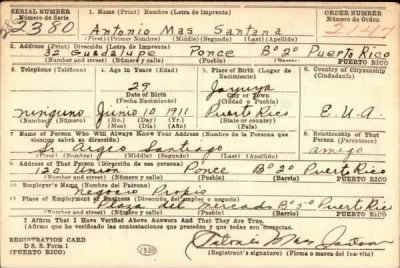 SERIAL NUMBER 1. Name (Print) Nombre (Letra de Imprenta) ORDER NUMBER
Número de Serie Número de Orden
2380 Antonio Mas Santana 2147
(First) (Primer Nombre) (Middle) (Segundo) (Last) (Apellido)
2. Address (Print) Dirección (Letra de Imprenta)
32 Guadalupe Ponce Bo 2o Puerto Rico
(Number and street) (Número y calle) (Town) (Pueblo) (Barrio) PUERTO RICO
3. Telephone (Teléfono) 4. Age in Years (Edad) 5. Place of Birth (Lugar de Nacimiento) 6. Country of Citizenship (Ciudadanía)
29 Jayuya
Date of Birth City or Town
(Fecha Nacimiento) (Ciudad o Pueblo)
ninguno Junio 10 1911 Puerto Rico E.U.A.
(Mo.) (Day) (Yr.) State or country
(Mes) (Día) (Año) (Estado o país)
7. Name of Person Who Will Always Know Your Address (Nombre de la Persona que siempre sabrá su dirección.) 8. Relationship of That Person (Parentesco)
Sr. Santiago amigo
(First) (Primer Nombre) (Middle) (Segundo) (Last) (Apellido)
9. Address of That Person (Dirección de esa persona)
120 Unión Ponce Bo 2o Puerto Rico
(Number and street) (Número y calle) (Town) (Pueblo) (Barrio) PUERTO RICO
10. Employer's Name (Nombre del Patrono)
Negocio Propio
11. Place of Employment or Business (Dirección del empleo o negocio)
Plaza del mercado Bo 5o Puerto Rico
(Number and street) (Número y calle) (Town) (Pueblo) (Barrio) PUERTO RICO
I Affirm That I Have Verified Above Answers And That They are True.
(Afirmo que he verificado las contestaciones que preceden y que todas son correctas.
REGISTRATION CARD
D. S. S. Form 1
(PUERTO RICO)
Antonio Mas Santana
(Registrant's signature) (Firma o marca del inscrito)